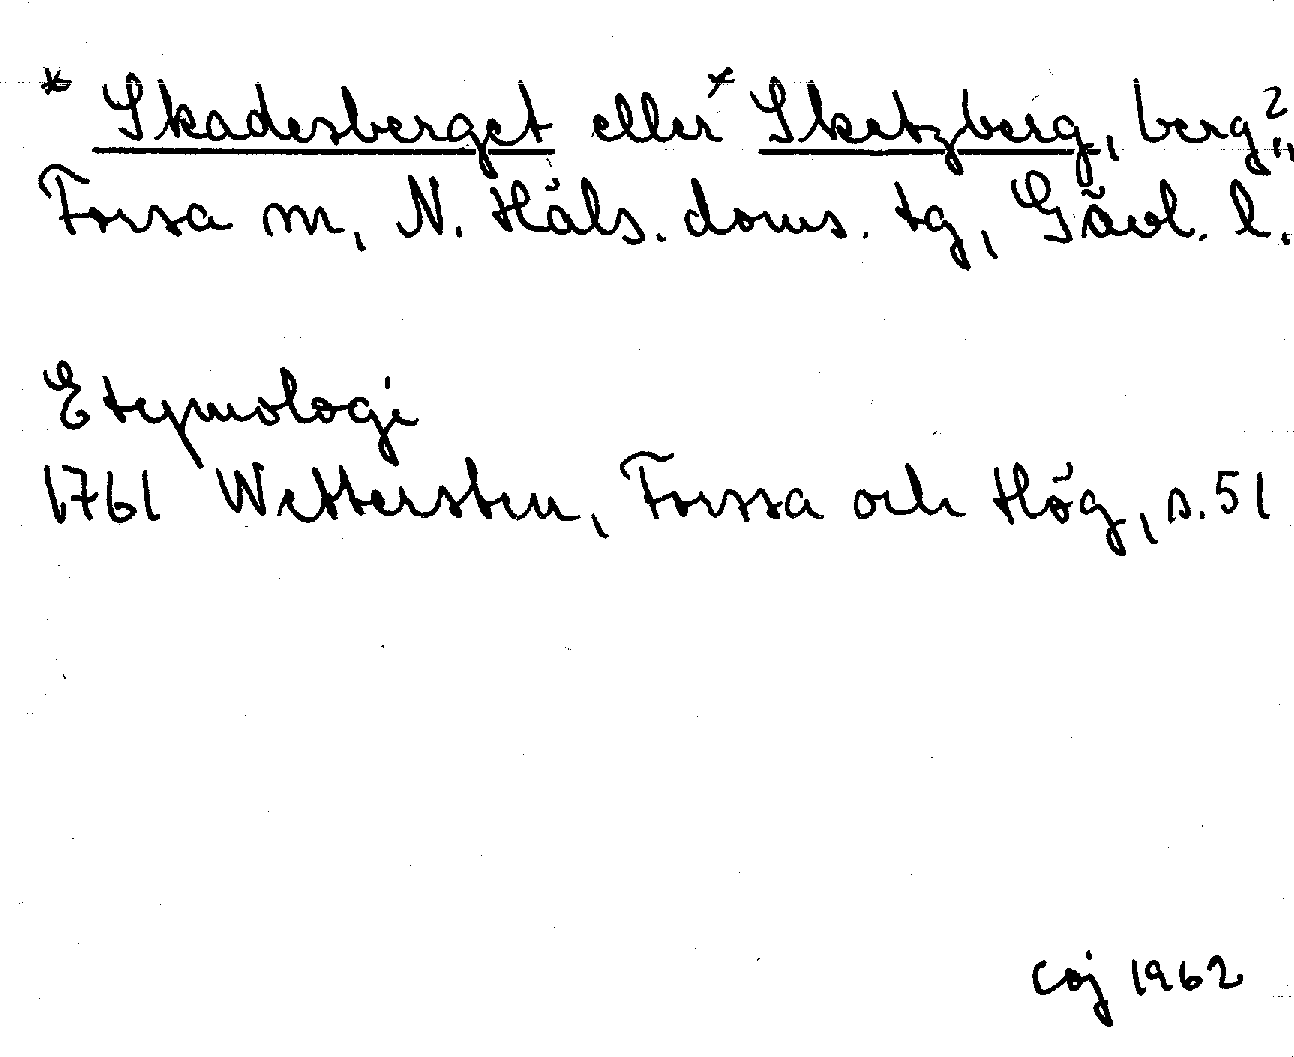 * Skadesberget eller * Sketzberg, berg?,
Forsa sn, N. Häls. doms. tg, Gävl. l.
Etymologi
1761 Wettersten, Forssa och Hög, s. 51
Coj 1962